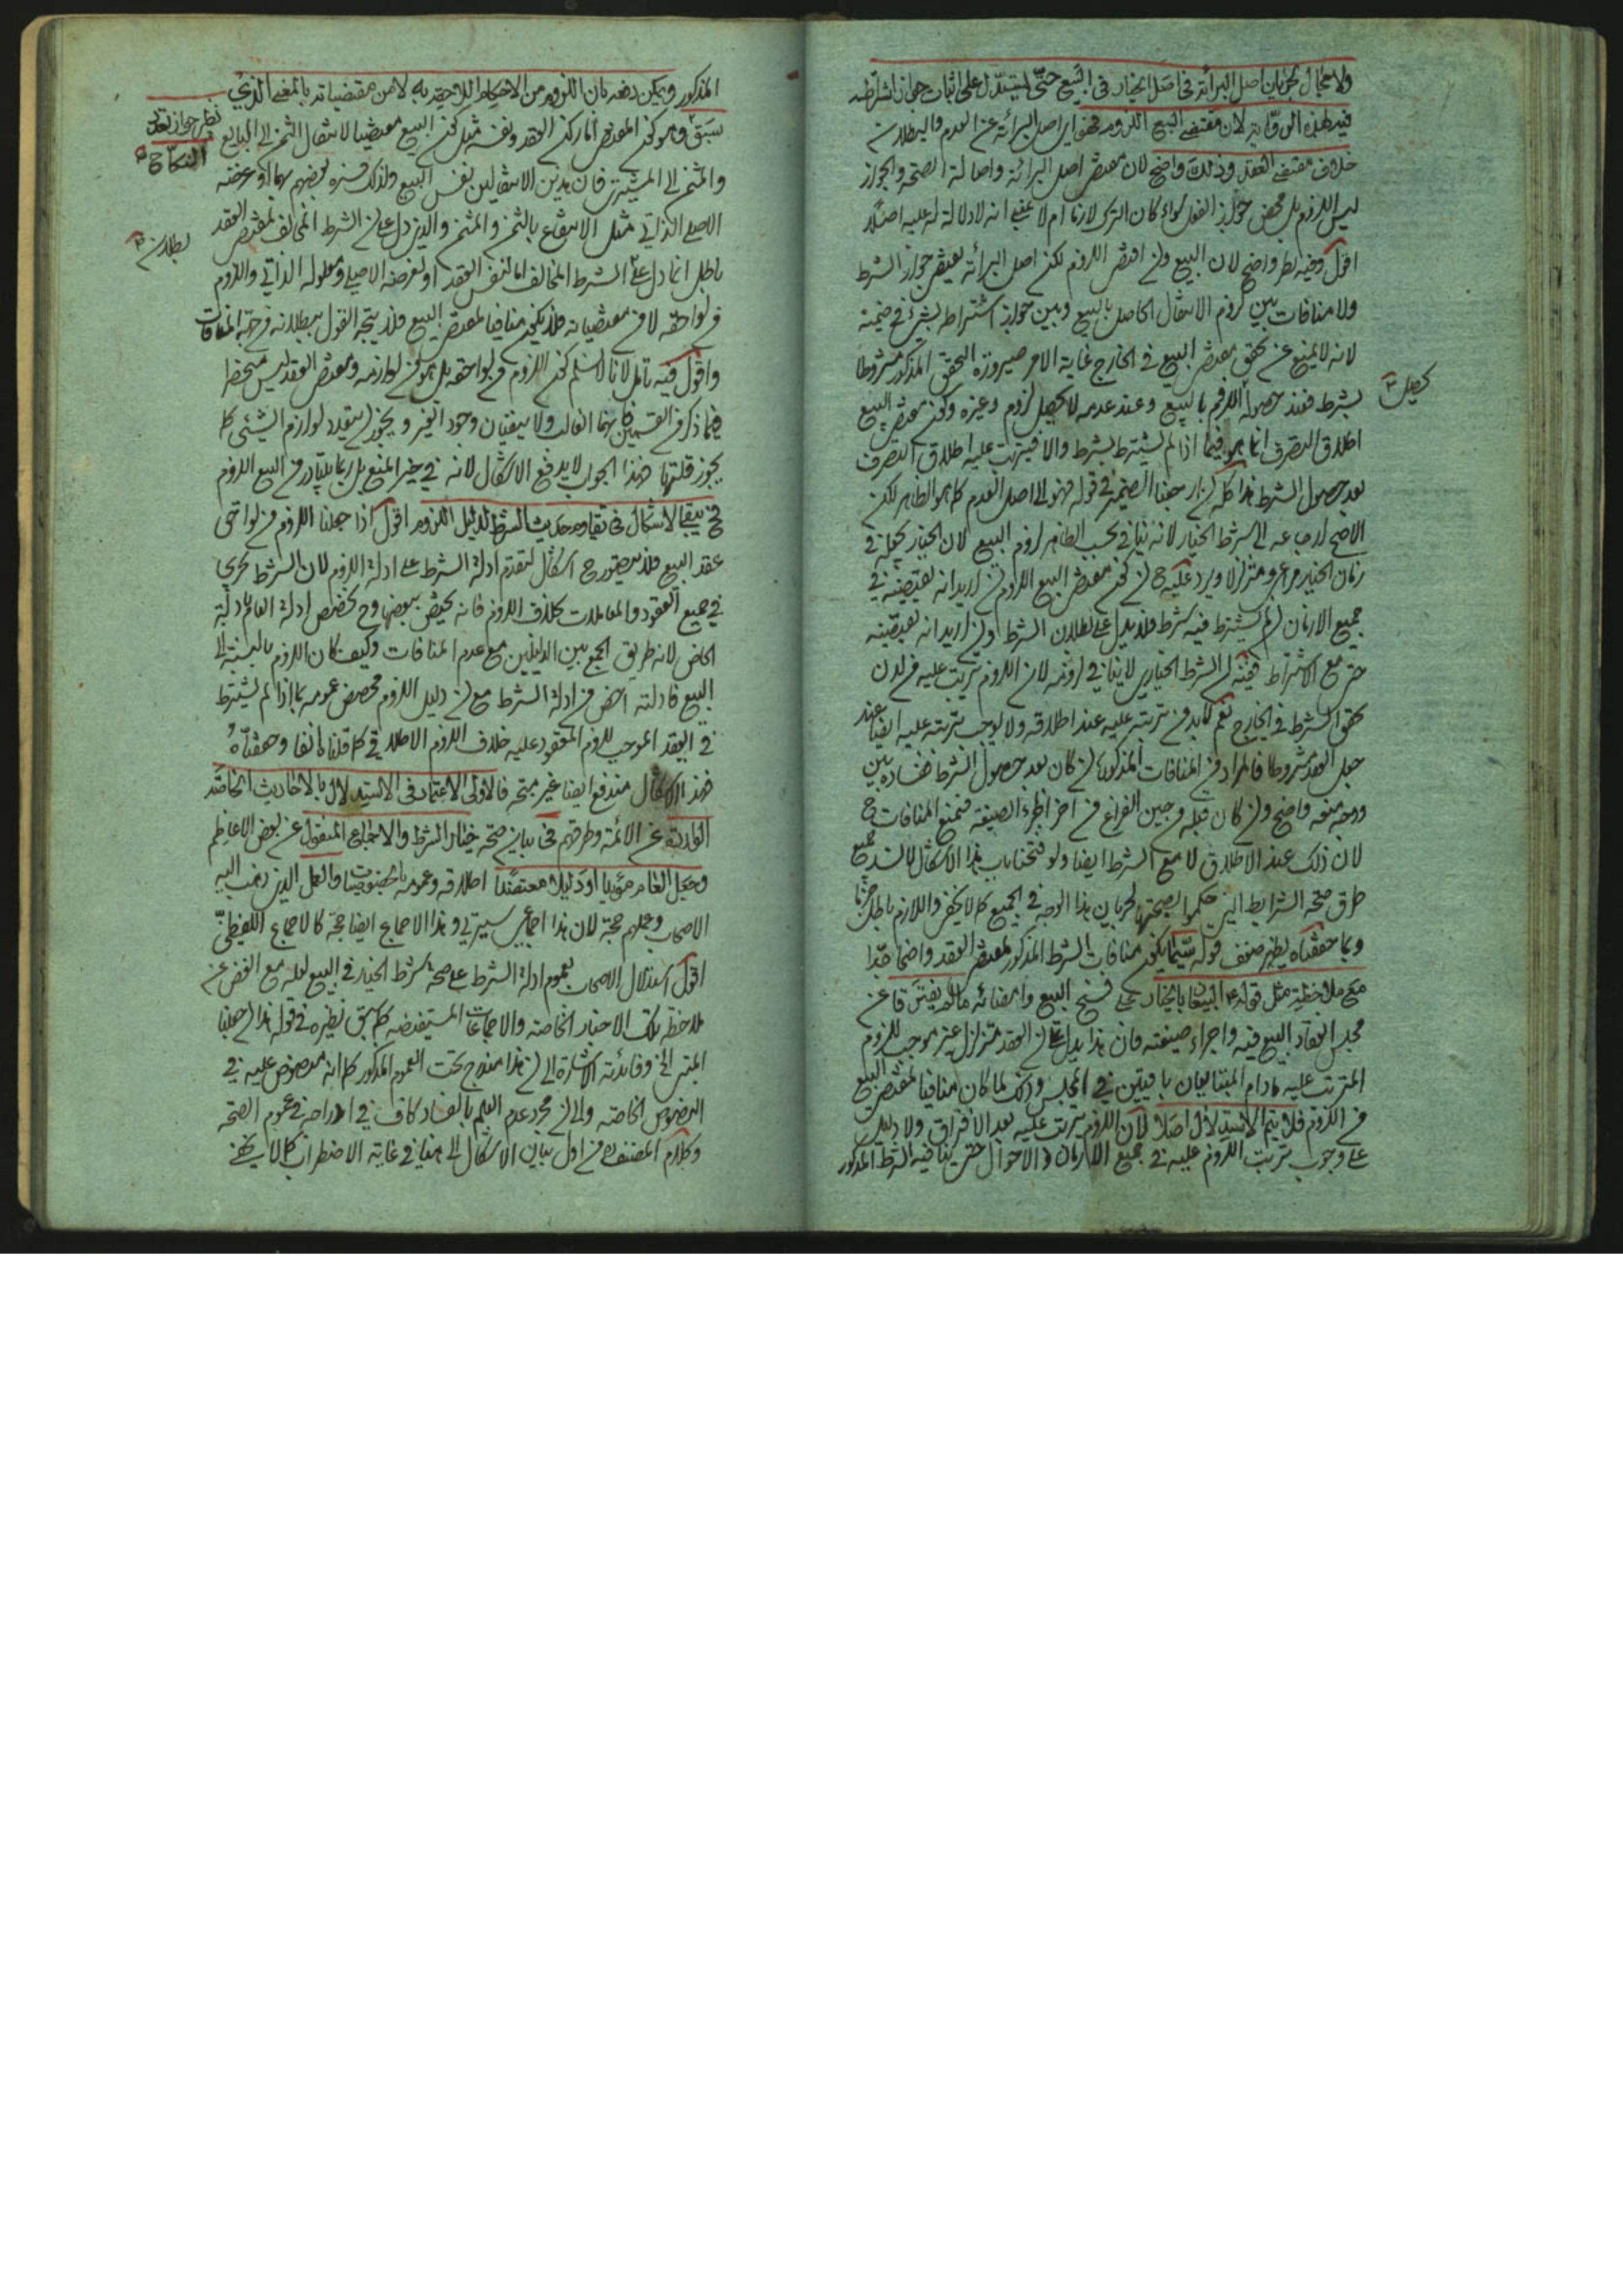 ولا مجال لجريان اصل البرائة في اصل الخيار في البيع حتى يستدل على اثبات جواز اشتراطه
فيه بهذه الرواية لان مقتضى البيع اللزوم فهو اي اصل البرائة عن العدم والبطلان
خلاف مقتضى العقد وذلك واضح لان مقتضى اصل البرائة واصالة الصحة والجواز
ليس اللزوم بل محض جواز الفعل سواء كان الترك لازما ام لا بمعنى انه لا دلالة له عليه اصلا
اقول وفيه نظر واضح لان البيع وان اقتضى اللزوم لكن اصل البرائة يقتضى جواز الشرط
ولا منافات بين لزوم الانتقال الحاصل بالبيع وبين جواز اشتراط شيء في ضمنه
لانه لا يمنع عن تحقق مقتضى البيع في الخارج غاية الامر صيرورة التحقق المذكور مشروطا
بشرط فعند حصوله اللزوم بالبيع وعند عدمه لا يحصل لزوم وغيره وكون مقتضى البيع
يحصل
اطلاق التصرف انما هو فيما اذا لم يشترط بشرط والا فيترتب عليه اطلاق التصرف
بعد حصول الشرط هذا كله ان ارجعنا الضمير في قوله فهو الى اصل العدم كما هو الظاهر لكن
الاصح ارجاعه الى شرط الخيار لانه ينافي بحسب الظاهر لزوم البيع لان الخيار يجعله في
زمان الخيار متزلزلا ويرد عليه ح ان كون مقتضى البيع اللزوم ان اريد انه يقتضيه في
جميع الازمان ان لم يشترط فيه شرط فلا يدل على بطلان الشرط وان اريد انه يقتضيه
حتى مع الاشتراط ففيه ان الشرط الخياري لا ينافي لزومه لان اللزوم يترتب عليه من لدن
تحقق الشرط في الخارج نعم لا بد من ترتبه عليه عند اطلاقه ولا يوجب ترتبه عليه ايضا عند
جعل العقد مشروطا فالمراد من المنافات المذكورة ان كان بعد حصول الشرط ففساده بين
ووجه منعه واضح وان كان قبله من حين الفراغ من اخر اجزاء الصيغة فنمنع المنافات ح
لان ذلك عند الاطلاق لا مع الشرط ايضا ولو فتحنا باب هذا الاشكال لانسد جميع
طرق صحة الشرايط التي حكموا بصحتها لجريان هذا الوجه في الجميع كما لا يخفى واللازم باطل جزما
وبما حققناه يظهر ضعف قوله سيما يكون منافات الشرط المذكور لمقتضى العقد واضحا جدا
مع ملاحظة مثل قوله ع البيعان بالخيار على فسخ البيع وامضائه مالم يفترقا عن
مجلس انعقاد البيع فيه واجراء صيغته فان هذا يدل على ان العقد متزلزل غير موجب للزوم
المترتب عليه مادام المتبايعان باقيتين في المجلس وذلك لما كان منافيا لمقتضى البيع
من اللزوم فلا يتم الاستدلال اصلا لان اللزوم يترتب عليه بعد الافتراق ولا دليل
على وجوب ترتب اللزوم عليه في جميع الازمان والاحوال حتى ينافيه الشرط المذكور
المذكور ويمكن دفعه بان اللزوم من الاحكام اللاحقة به لا من مقتضياته بالمعنى الذي
سبق وهو كون المقتضى انما ركن العقد ونفسه مثل كون البيع مقتضيا لانتقال الثمن الى البايع
نظير جواز تعدد
النكاح
والمثمن الى المشتري فان هذين الانتقالين نفس البيع ولذلك فسره بعضهم بهما او غرضه
الاصلي الذاتي مثل الانتفاع بالثمن والمثمن والذي دل على ان الشرط المخالف لمقتضى العقد
بطلان
باطل انما دل على الشرط المخالف اما لنفس العقد او لغرضه الاصلي ومعلوله الذاتي واللزوم
من لواحقه لا من مقتضياته فلا يكون منافيا لمقتضى البيع فلا يتجه القول ببطلانه من جهة المنافات
واقول فيه تامل لانا لا نسلم كون اللزوم من لواحقه بل هو من لوازمه ومقتضى العقد ليس منحصرا
فيما ذكر من القسمين فانهما الغالب ولا ينفيان وجود الغير ويجوز ان يتعدد لوازم الشيئ كما
يجوز قلتها فهذا الجواب لا يدفع الاشكال لانه في حيز المنع بل ربما يتبادر من البيع اللزوم
فح يبقى الاشكال في تقاوم حديث الشرط لدليل اللزوم اقول اذا جعلنا اللزوم من لواحق
عقد البيع فلا يتصور ح اشكال لتقدم ادلة الشرط على ادلة اللزوم لان الشرط يجري
في جميع العقود والمعاملات بخلاف اللزوم فانه يختص ببعضها وح تخصص ادلة العام بادلة
الخاص لانه طريق الجمع بين الدليلين مع عدم المنافات وكيف كان اللزوم بالنسبة الى
البيع فادلته اخص من ادلة الشرط مع ان دليل اللزوم مخصص عمومه بما اذا لم يشترط
في العقد الموجب للزوم المعقود عليه خلاف اللزوم الاطلاقي كما قلناه انفا وحققناه
فهذا الاشكال مندفع ايضا غير متجه فالاولى الاعتماد في الاستدلال بالاحاديث الخاصة
الواردة عن الائمة وطرقهم في بيان صحة خيار الشرط والاجماع المنقول عن بعض الاعاظم
وجعل العام مؤيدا او دليلا معتضدا اطلاقه وعمومه بالخصوصيات والعمل الذي ذهب اليه
الاصحاب وعملهم حجة لان هذا اجماعي سيرتي وهذا الاجماع ايضا حجة كالاجماع اللفظي
اقول استدلال الاصحاب بعموم ادلة الشرط على صحة شرط الخيار في البيع لعله مع الغض عن
ملاحظة تلك الاخبار الخاصة والاجماعات المستفيضة كما سبق نظيره في قوله هذا ان جعلنا
المتن الخ وفائدته الاشارة الى ان هذا مندرج تحت العموم المذكور كما انه منصوص عليه في
النصوص الخاصة والى ان مجرد عدم العلم بالفساد كاف في ادراجه في عموم الصحة
وكلام المصنف ره من اول بيان الاشكال الى هنا في غاية الاضطراب كما لا يخفى